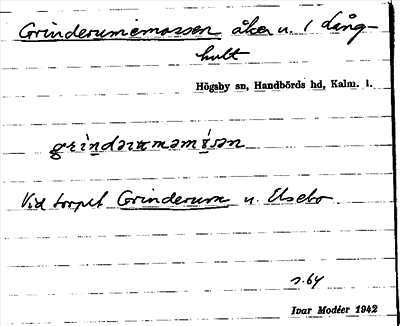 Grinderumemossen åker u. / Lång-
hult
Högsby sn, Handbörds hd, Kalm. l.
Vid torpet Grinderum u. Elsebo
s. 64
Ivar Modéer 1942